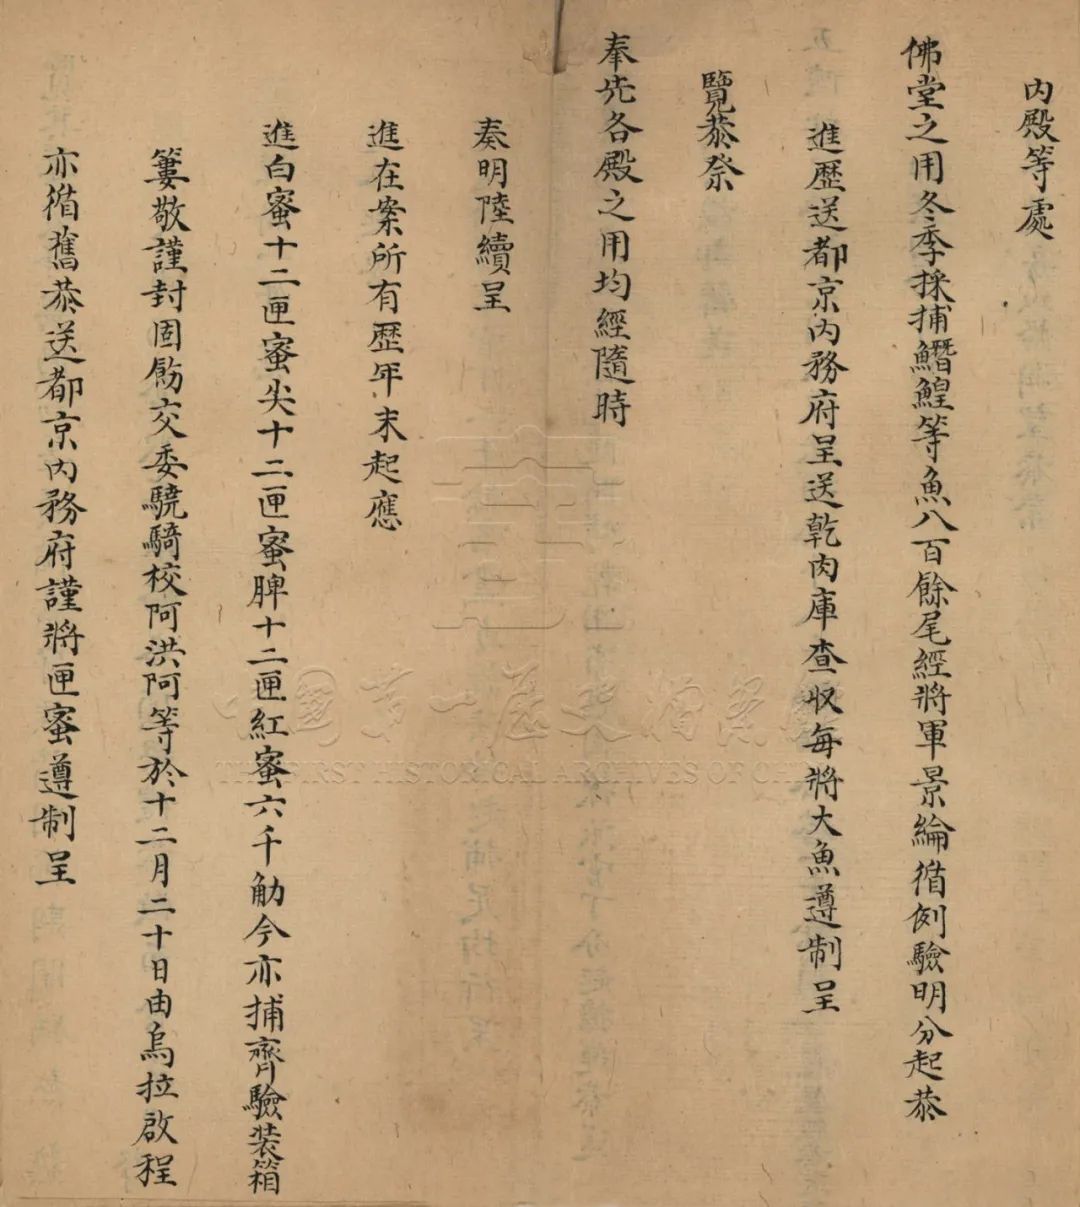 內殿等處
佛堂之用冬季採捕鱘鰉等魚八百餘尾經將軍景綸循例驗明分起恭
進歷送都京內務府呈送乾肉庫查收每將大魚遵制呈
覽恭祭
奉先各殿之用均經隨時
奏明陸續呈
進在案所有歷年末起應
進白蜜十二匣蜜尖十二匣蜜脾十二匣紅蜜六千觔今亦捕齊驗裝箱
簍敬謹封固飭交委驍騎校阿洪阿等於十二月二十日由烏拉啟程
亦循舊恭送都京內務府謹將匣蜜遵制呈
中國第一歷史檔案館
THE FIRST HISTORICAL ARCHIVES OF CHINA